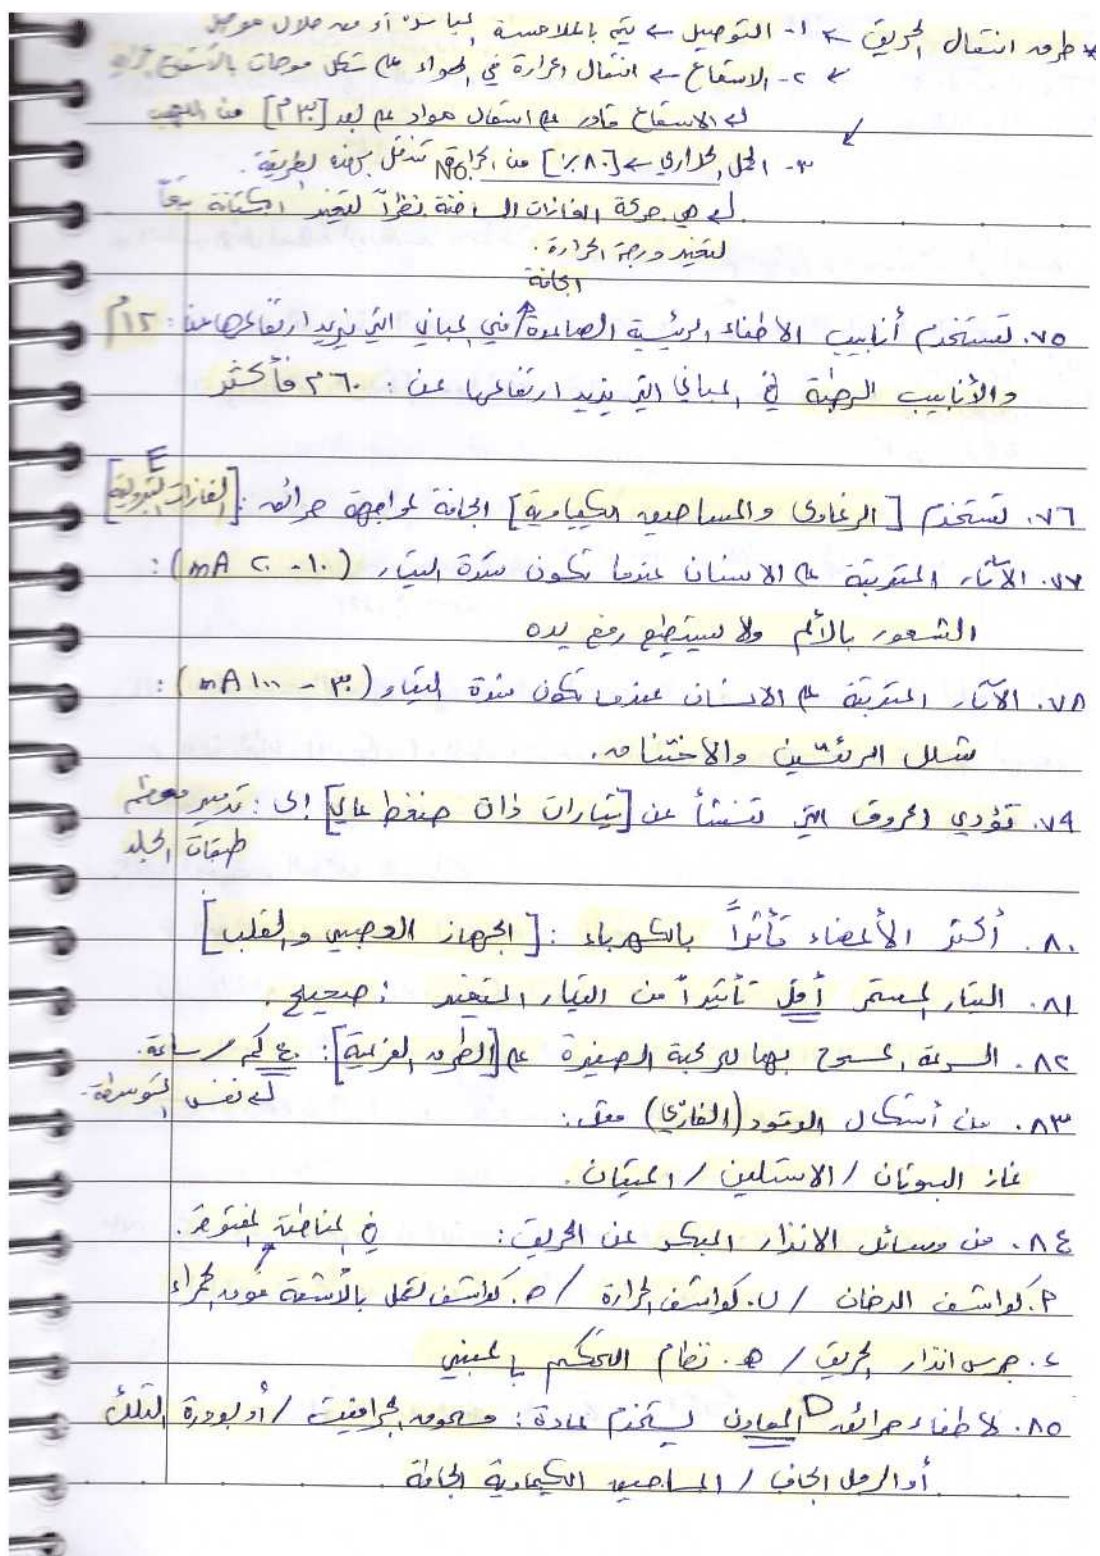 * طرق انتقال الحريق ← ١- التوصيل ← يتم بالملامسة المباشرة أو من خلال موصل
← ٢- الاشعاع ← انتقال الحرارة في الهواء على شكل موجات بالأشعاع الحراري
↲ الاشعاع قادر على اشتعال مواد على بعد [٣٠م] من اللهب
٣- الحمل الحراري ← [٨٠٪] من الحرارة تنتقل بهذه الطريقة.
No.
↲ هي حركة الغازات الساخنة نظراً لتغير الكثافة تبعاً
لتغير درجة الحرارة.
الجافة
٧٥. تستخدم أنابيب الاطفاء الرئيسية الصاعدة في المباني التي يزيد ارتفاعها عن: ١٢م
والأنابيب الرطبة في المباني التي يزيد ارتفاعها عن: ٦٠م فأكثر
E
٧٦. تستخدم [الرغاوى والمساحيق الكيمياوية] الجافة لمواجهة حرائق: [الغازات البترولية]
٧٧. الآثار المترتبة على الانسان عندما تكون شدة التيار (١٠-٢٠ mA):
الشعور بالألم ولا يستطيع رفع يده
٧٨. الآثار المترتبة على الانسان عندما تكون شدة التيار (٣٠-١٠٠ mA):
شلل الرئتين والاختناق.
٧٩. تؤدي الحروق التي تنشأ عن [تيارات ذات ضغط عالي] إلى: تدمير معظم
طبقات الجلد
٨٠. أكثر الأعضاء تأثراً بالكهرباء: [الجهاز العصبي والقلب]
٨١. التيار المستمر أقل تأثيراً من التيار المتغير: صحيح.
٨٢. السرعة المسموح بها للمركبة الصغيرة على [الطرق الفرعية]: ٤٠ كم/ساعة.
↲ نفس المتوسطة.
٨٣. من أشكال الوقود (الغازي) مثل:
غاز البيوتان / الاستلين / الميثان.
٨٤. من وسائل الانذار المبكر عن الحريق: في المناطق المفتوحة.
أ. كواشف الدخان / ب. كواشف الحرارة / ج. كواشف تعمل بالأشعة فوق الحمراء
د. جرس انذار الحريق / هـ. نظام التحكم بالمبنى
٨٥. لاطفاء حرائق D المعادن يستخدم عادة: مسحوق الجرافيت / أو بودرة التلك
أو الرمل الجاف / المساحيق الكيماوية الجافة